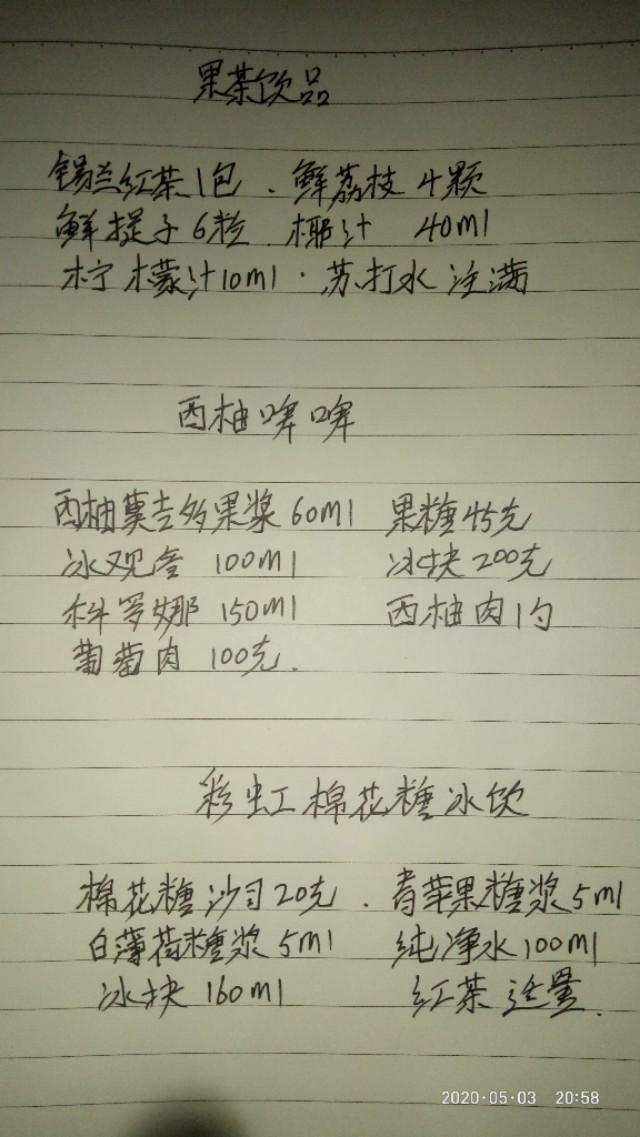 果茶饮品
锡兰红茶1包.鲜荔枝4颗
鲜提子6粒.椰汁 40ml
柠檬汁10ml.苏打水注满
西柚啤啤
西柚莫吉多果浆60ml 果糖45克
冰观音 100ml 冰块200克
科罗娜 150ml 西柚肉1勺
葡萄肉 100克.
彩虹棉花糖冰饮
棉花糖沙司20克.青苹果糖浆5ml
白薄荷糖浆5ml 纯净水100ml
冰块160ml 红茶适量.
2020·05·03 20:58